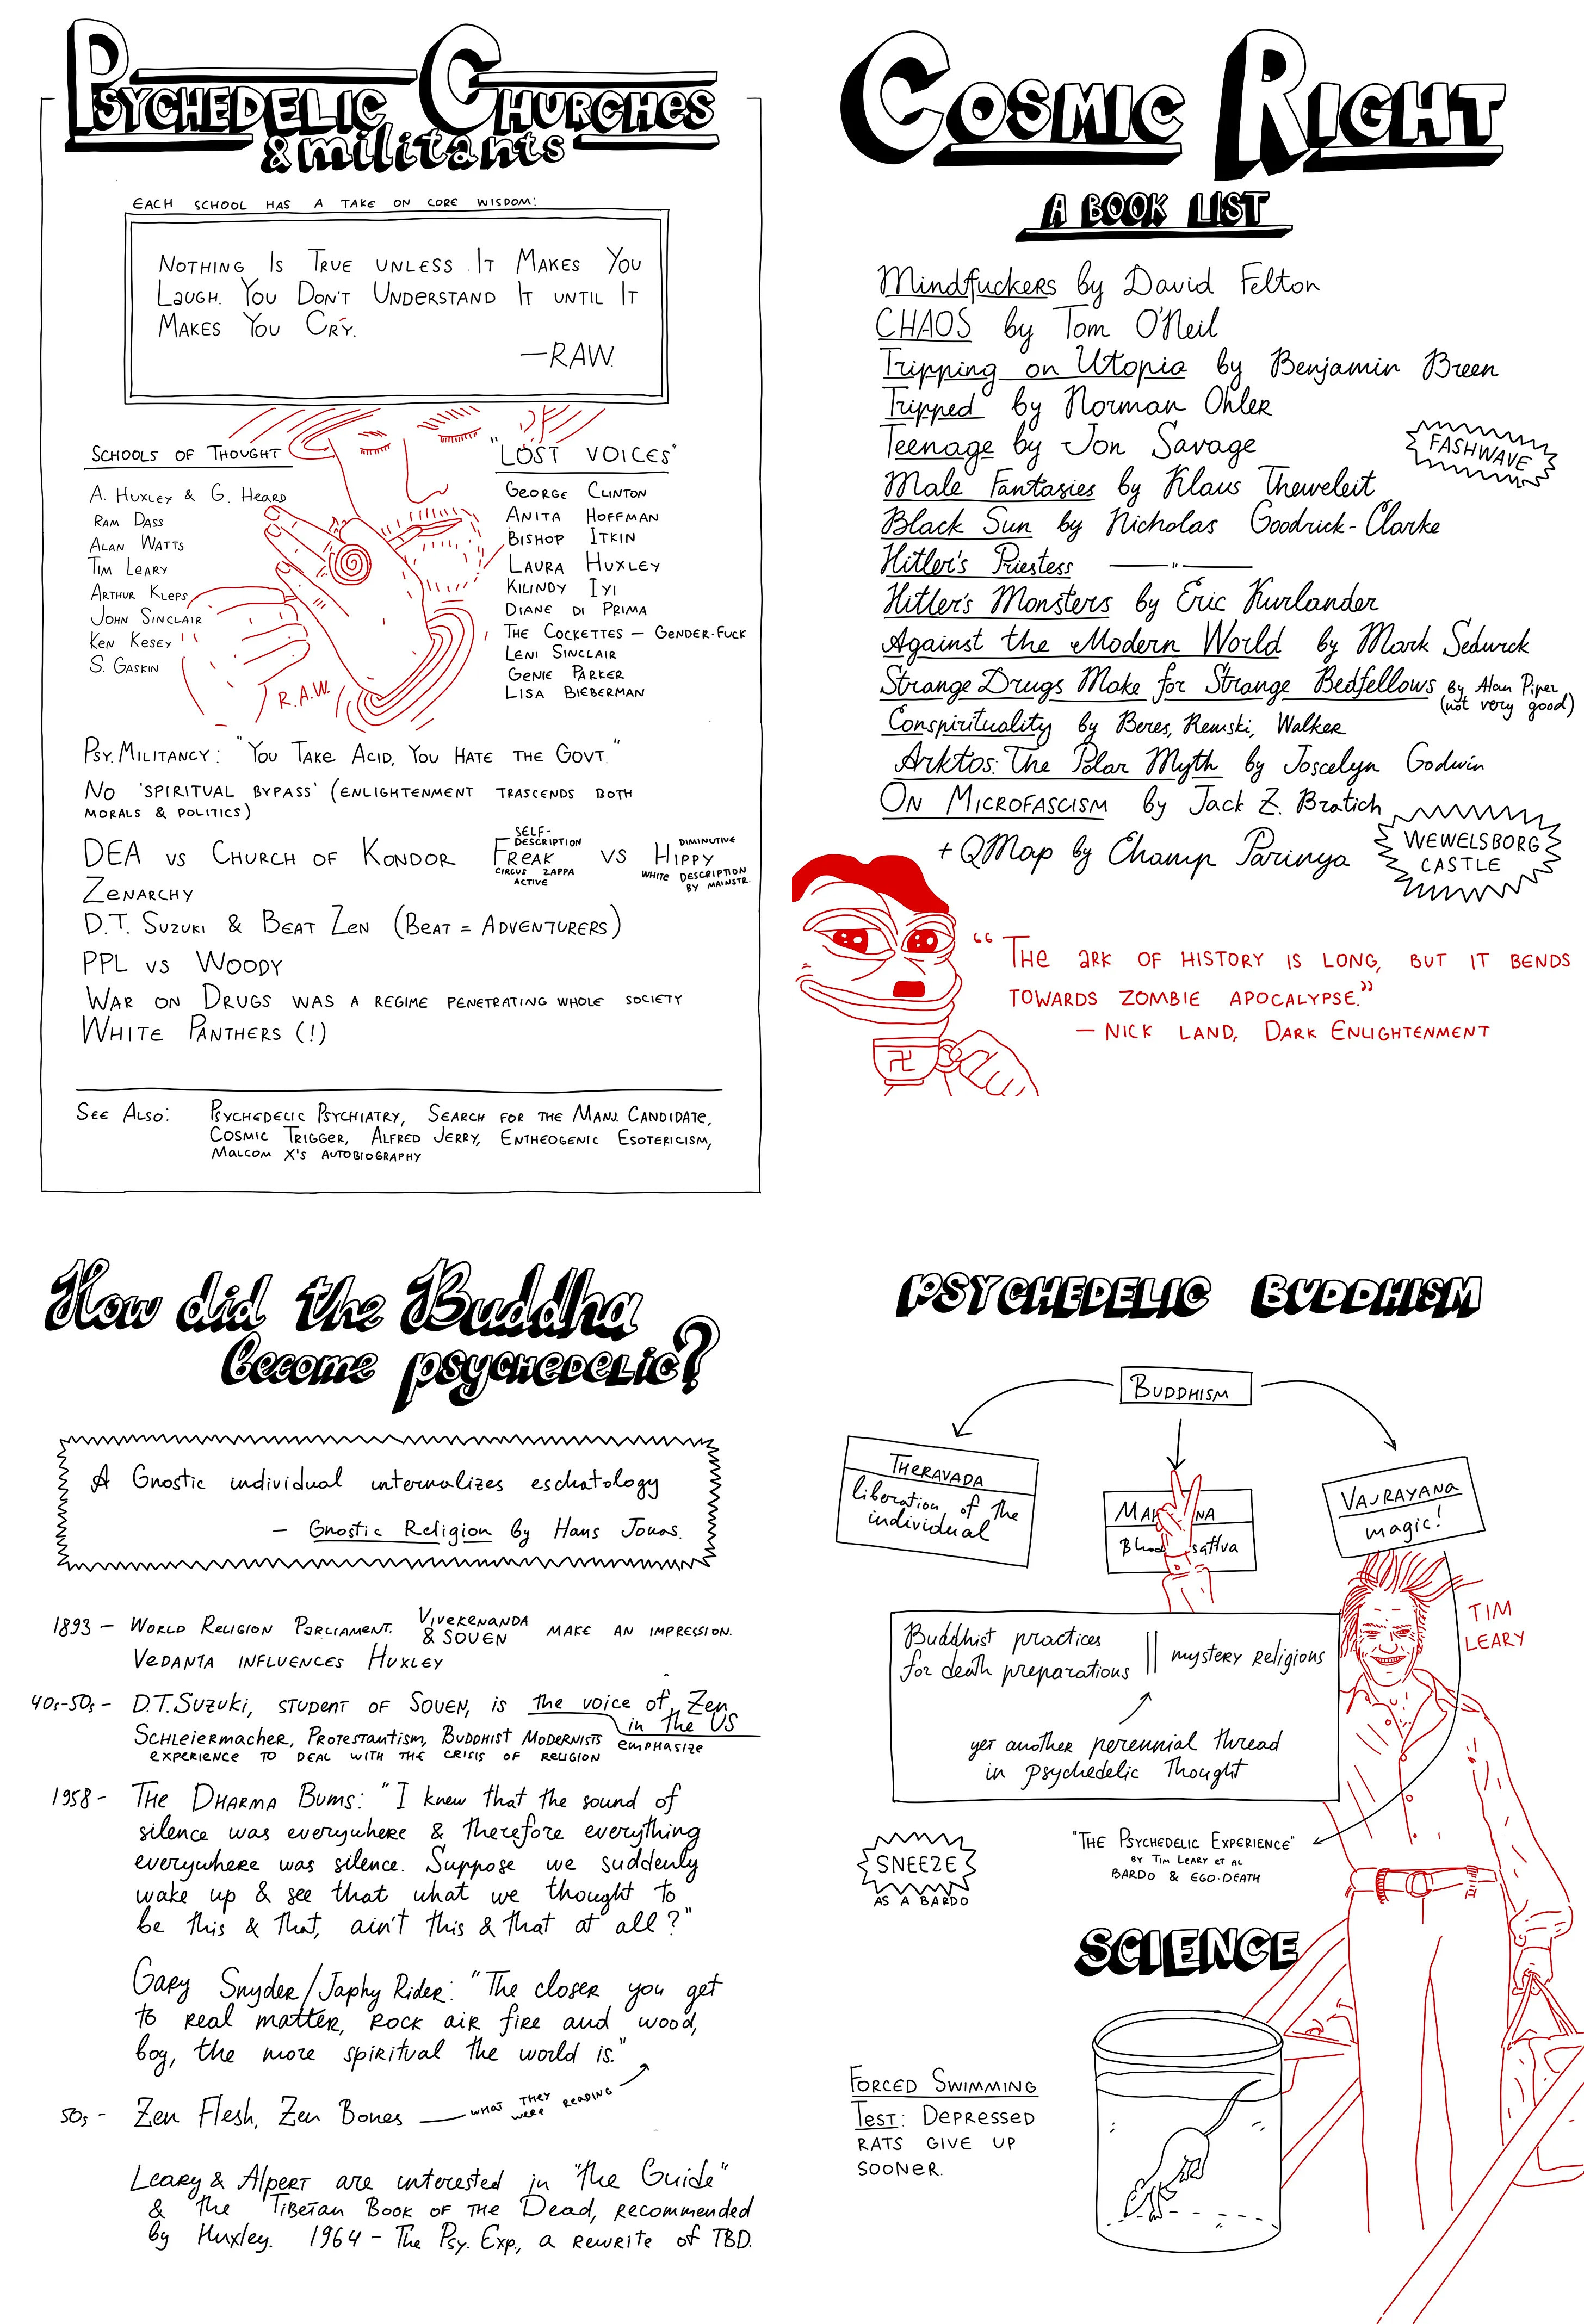 PSYCHEDELIC CHURCHES
& militants
EACH SCHOOL HAS A TAKE ON CORE WISDOM:
NOTHING IS TRUE UNLESS IT MAKES YOU
LAUGH. YOU DON'T UNDERSTAND IT UNTIL IT
MAKES YOU CRY.
—RAW.
SCHOOLS OF THOUGHT
A. HUXLEY & G. HEARD
RAM DASS
ALAN WATTS
TIM LEARY
ARTHUR KLEPS
JOHN SINCLAIR
KEN KESEY
S. GASKIN
R.A.W.
"LOST VOICES"
GEORGE CLINTON
ANITA HOFFMAN
BISHOP ITKIN
LAURA HUXLEY
KILINDY IYI
DIANE DI PRIMA
THE COCKETTES — GENDER-FUCK
LENI SINCLAIR
GENIE PARKER
LISA BIEBERMAN
PSY. MILITANCY: "YOU TAKE ACID, YOU HATE THE GOVT."
NO 'SPIRITUAL BYPASS' (ENLIGHTENMENT TRASCENDS BOTH
MORALS & POLITICS)
DEA VS CHURCH OF KONDOR
SELF-
DESCRIPTION
FREAK
CIRCUS ZAPPA
ACTIVE
VS
DIMINUTIVE
HIPPY
WHITE DESCRIPTION
BY MAINSTR.
ZENARCHY
D.T. SUZUKI & BEAT ZEN (BEAT = ADVENTURERS)
PPL VS WOODY
WAR ON DRUGS WAS A REGIME PENETRATING WHOLE SOCIETY
WHITE PANTHERS (!)
SEE ALSO: PSYCHEDELIC PSYCHIATRY, SEARCH FOR THE MANJ. CANDIDATE,
COSMIC TRIGGER, ALFRED JERRY, ENTHEOGENIC ESOTERICISM,
MALCOM X'S AUTOBIOGRAPHY
COSMIC RIGHT
A BOOK LIST
Mindfuckers by David Felton
CHAOS by Tom O'Neil
Tripping on Utopia by Benjamin Breen
Tripped by Norman Ohler
Teenage by Jon Savage
FASHWAVE
Male Fantasies by Klaus Theweleit
Black Sun by Nicholas Goodrick-Clarke
Hitler's Priestess —"—
Hitler's Monsters by Eric Kurlander
Against the Modern World by Mark Sedwick
Strange Drugs Make for Strange Bedfellows by Alan Piper
(not very good)
Conspirituality by Beres, Remski, Walker
Arktos: The Polar Myth by Joscelyn Godwin
ON MICROFASCISM by Jack Z. Bratich
+ QMap by Champ Parinya
WEWELSBORG
CASTLE
"THE ARK OF HISTORY IS LONG, BUT IT BENDS
TOWARDS ZOMBIE APOCALYPSE."
— NICK LAND, DARK ENLIGHTENMENT
How did the Buddha
become psychedelic?
A Gnostic individual internalizes eschatology
— Gnostic Religion by Hans Jonas.
1893 — WORLD RELIGION PARLIAMENT. VIVEKENANDA & SOUEN MAKE AN IMPRESSION.
VEDANTA INFLUENCES HUXLEY
40s-50s — D.T. SUZUKI, STUDENT OF SOUEN, IS the voice of Zen
in the US
SCHLEIERMACHER, PROTESTANTISM, BUDDHIST MODERNISTS emphasize
EXPERIENCE TO DEAL WITH THE CRISIS OF RELIGION
1958 - THE DHARMA BUMS: "I knew that the sound of
silence was everywhere & therefore everything
everywhere was silence. Suppose we suddenly
wake up & see that what we thought to
be this & that, ain't this & that at all?"
Gary Snyder/Japhy Rider: "The closer you get
to real matter, rock air fire and wood,
boy, the more spiritual the world is."
50s - Zen Flesh, Zen Bones — WHAT THEY WERE READING
Leary & Alpert are interested in "the Guide"
& the TIBETAN BOOK OF THE Dead, recommended
by Huxley. 1964 — The Psy. Exp., a rewrite of TBD.
PSYCHEDELIC BUDDHISM
BUDDHISM
THERAVADA
liberation of the
individual
MA NA
sattva
VAJRAYANA
magic!
TIM
LEARY
Buddhist practices
for death preparations || mystery religions
yet another perennial thread
in psychedelic thought
"THE PSYCHEDELIC EXPERIENCE"
BY TIM LEARY ET AL
BARDO & EGO-DEATH
SNEEZE
AS A BARDO
SCIENCE
FORCED SWIMMING
TEST: DEPRESSED
RATS GIVE UP
SOONER.